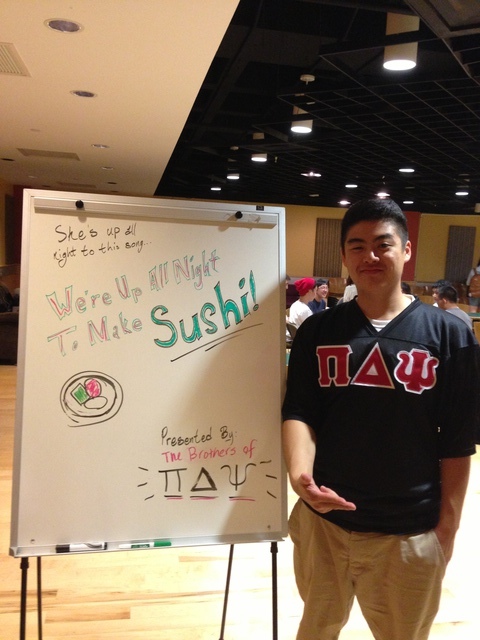 She's up all
right to this song...
We're Up All Night
To Make Sushi!
Presented By:
The Brothers of
ΠΔΨ
ΠΔΨ